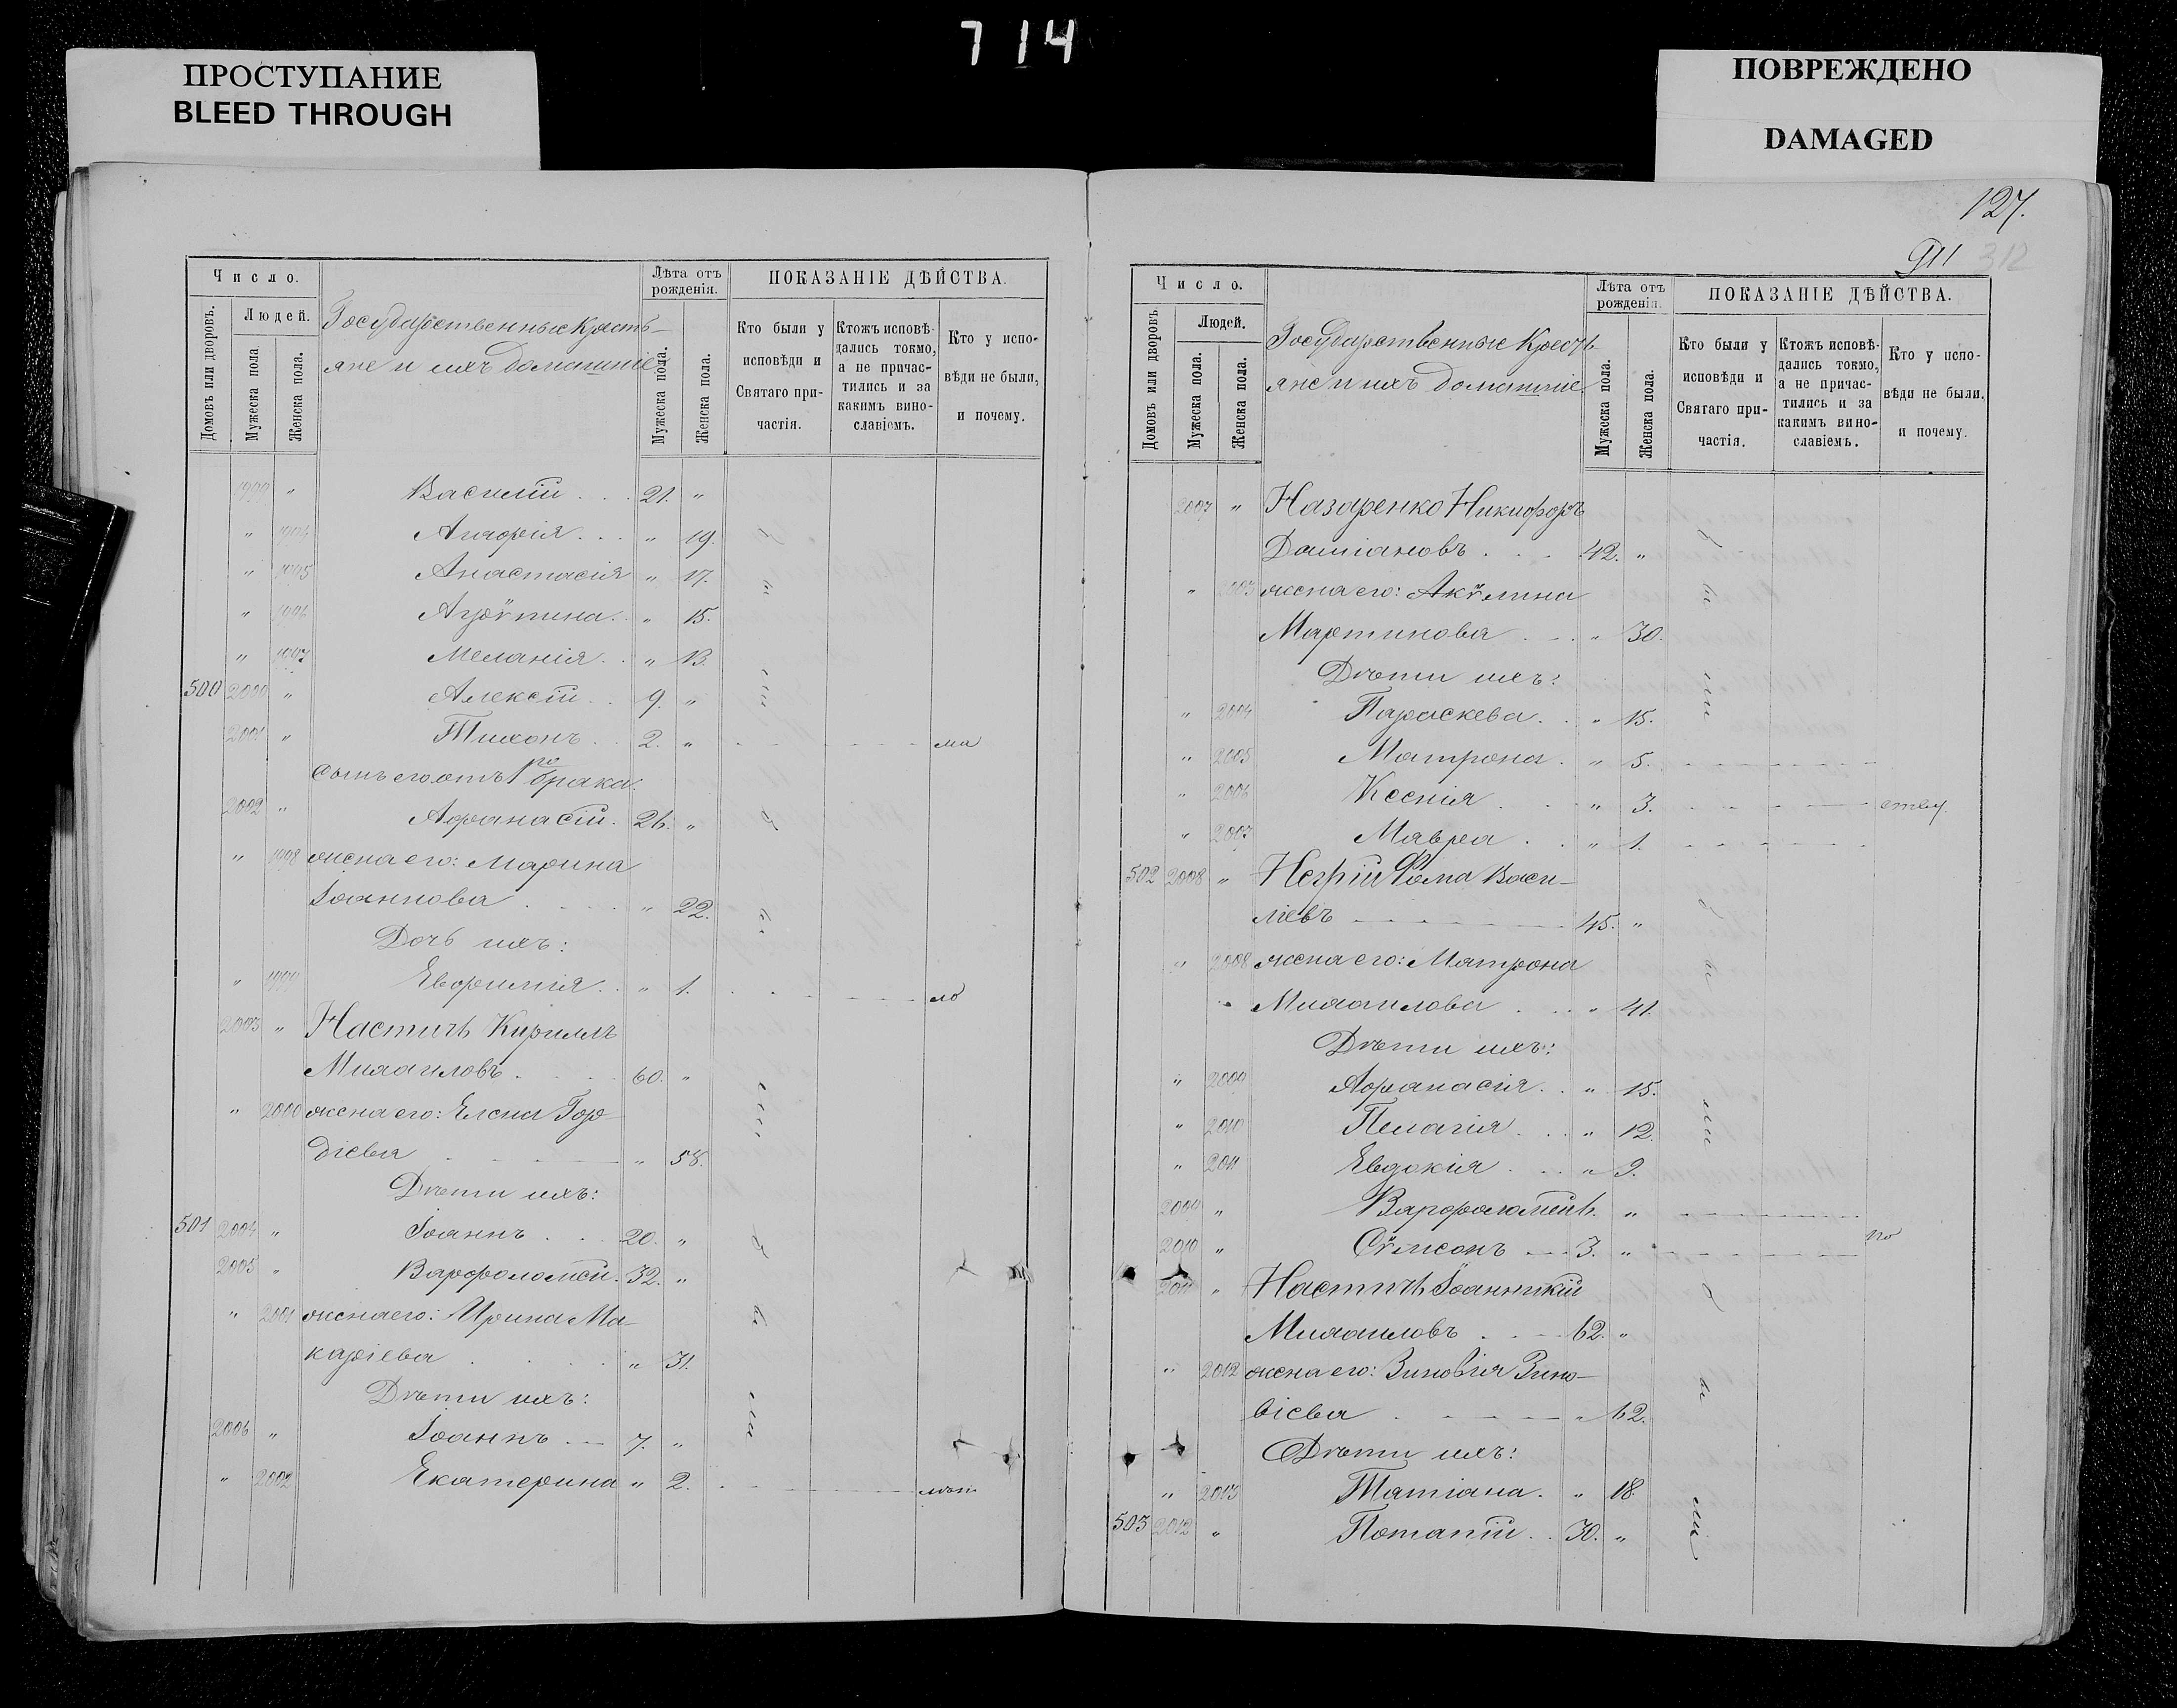 714
ПРОСТУПАНИЕ
BLEED THROUGH
ПОВРЕЖДЕНО
DAMAGED
Число.
Людей.
Домовъ или дворовъ.
Мужеска пола
Женска пола.
Государственные Кресть-
яне и ихъ домашніе
Лѣта отъ
рожденія.
Мужеска пола.
Женска пола.
ПОКАЗАНІЕ ДѢЙСТВА.
Кто были у
исповѣди и
Святаго при-
частія.
Ктожъ исповѣ-
дались токмо,
а не причас-
тились и за
какимъ вино-
славіемъ.
Кто у испо-
вѣди не были,
и почему.
1999 " Василій . . . 21. "
" 1994 Агафія . . . " 19.
" 1995 Анастасія " 17.
" 1996 Агрѵпина . . " 15.
" 1997 Меланія . . " 13.
500 2000 " Алексій . . 9. "
2001 " Тихонъ . . 2. " ма
сынъ его отъ 1го брака:
2002 " Афанасій . 26. "
" 1998 жена его: Марина
Іоаннова . . . " 22.
Дочь ихъ:
" 1999 Евфимія . . " 1. ло
2003 " Настичъ Кириллъ
Михаиловъ . . . 60. "
" 2000 жена его: Елена Гор-
діева " 58.
Дѣти ихъ:
501 2004 " Іоаннъ . . . 20. "
2005 " Варфоломей . 32. "
" 2001 жена его: Ирина Ма-
каріева . . . . " 31.
Дѣти ихъ:
2006 " Іоаннъ 7. "
" 2002 Екатерина " 2. лѣт
127.
911 312
Число.
Людей.
Домовъ или дворовъ.
Мужеска пола.
Женска пола.
Государственные Кресть-
яне и ихъ домашніе
Лѣта отъ
рожденія.
Мужеска пола.
Женска пола.
ПОКАЗАНІЕ ДѢЙСТВА.
Кто были у
исповѣди и
Святаго при-
частія.
Ктожъ исповѣ-
дались токмо,
а не причас-
тились и за
какимъ вино-
славіемъ.
Кто у испо-
вѣди не были,
и почему.
2007 " Назаренко Никифоръ
Даміановъ . . . 42. "
" 2003 жена его: Акѵлина
Мартинова " 30.
Дѣти ихъ:
" 2004 Параскева . . " 15.
" 2005 Матрона . " 5.
" 2006 Ксенія . . " 3. ству.
" 2007 Мавра . . " 1.
502 2008 " Негрій Фома Васи-
ліевъ 45. "
" 2008 жена его: Матрона
Михаилова . . . " 41.
Дѣти ихъ:
" 2009 Афанасія . . " 15.
" 2010 Пелагія . . . " 12.
" 2011 Евдокія . . . " 9.
2009 " Варфоломей 6. "
2010 " Сѵмеонъ 3. " по
2011 " Настичъ Іоанникій
Михаиловъ . . 62. "
" 2012 жена его: Зиновія Зино-
віева " 62.
Дѣти ихъ:
" 2013 Татіана . " 18.
503 2012 " Потапій . . 30. "